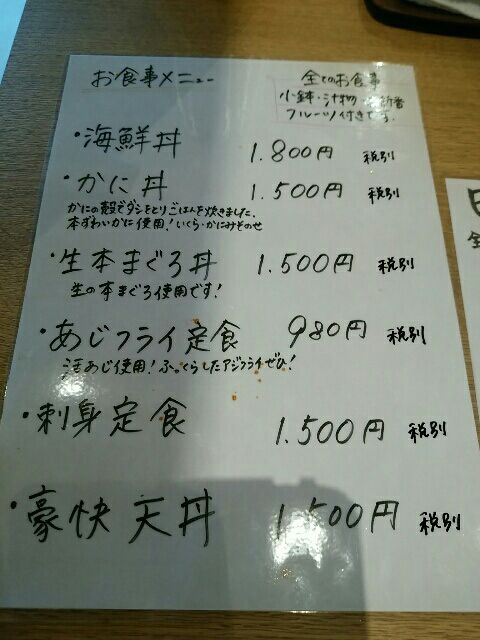 お食事メニュー
全てのお食事
小鉢・汁物・香
フルーツ付きです。
・海鮮丼 1.800円 税別
・かに丼 1.500円 税別
かにの殻でダシをとりごはんを炊きました、
本ずわいかに使用!いくら・かにみそのせ
・生本まぐろ丼 1.500円 税別
生の本まぐろ使用です!
・あじフライ定食 980円 税別
活あじ使用!ふっくらしたアジフライぜひ!
・刺身定食 1.500円 税別
・豪快天丼 1.500円 税別